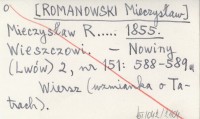 o [ROMANOWSKI Mieczysław]
Mieczysław R..... 1855.
Wieszczowi. - Nowiny
(Lwów) 2, nr 151: 588-589.
Wiersz (wzmianka o Ta-
trach).